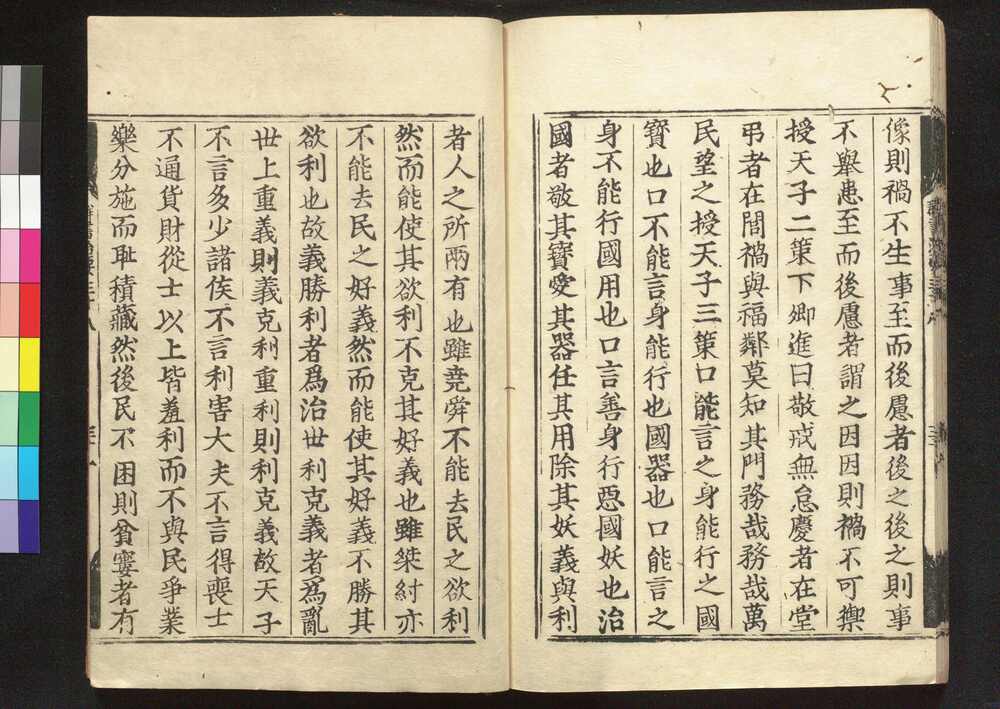 像則禍不生事至而後慮者後之後之則事
不舉患至而後慮者謂之困困則禍不可禦
授天子二策下卿進曰敬戒無怠慶者在堂
弔者在閭禍與福鄰莫知其門務哉務哉萬
民望之授天子三策口能言之身能行之國
寶也口不能言身能行也國器也口能言之
身不能行國用也口言善身行惡國妖也治
國者敬其寶愛其器任其用除其妖義與利
者人之所兩有也雖堯舜不能去民之欲利
然而能使其欲利不克其好義也雖桀紂亦
不能去民之好義然而能使其好義不勝其
欲利也故義勝利者爲治世利克義者爲亂
世上重義則義克利重利則利克義故天子
不言多少諸侯不言利害大夫不言得喪士
不通貨財從士以上皆羞利而不與民爭業
樂分施而耻積藏然後民不困則貧窶者有